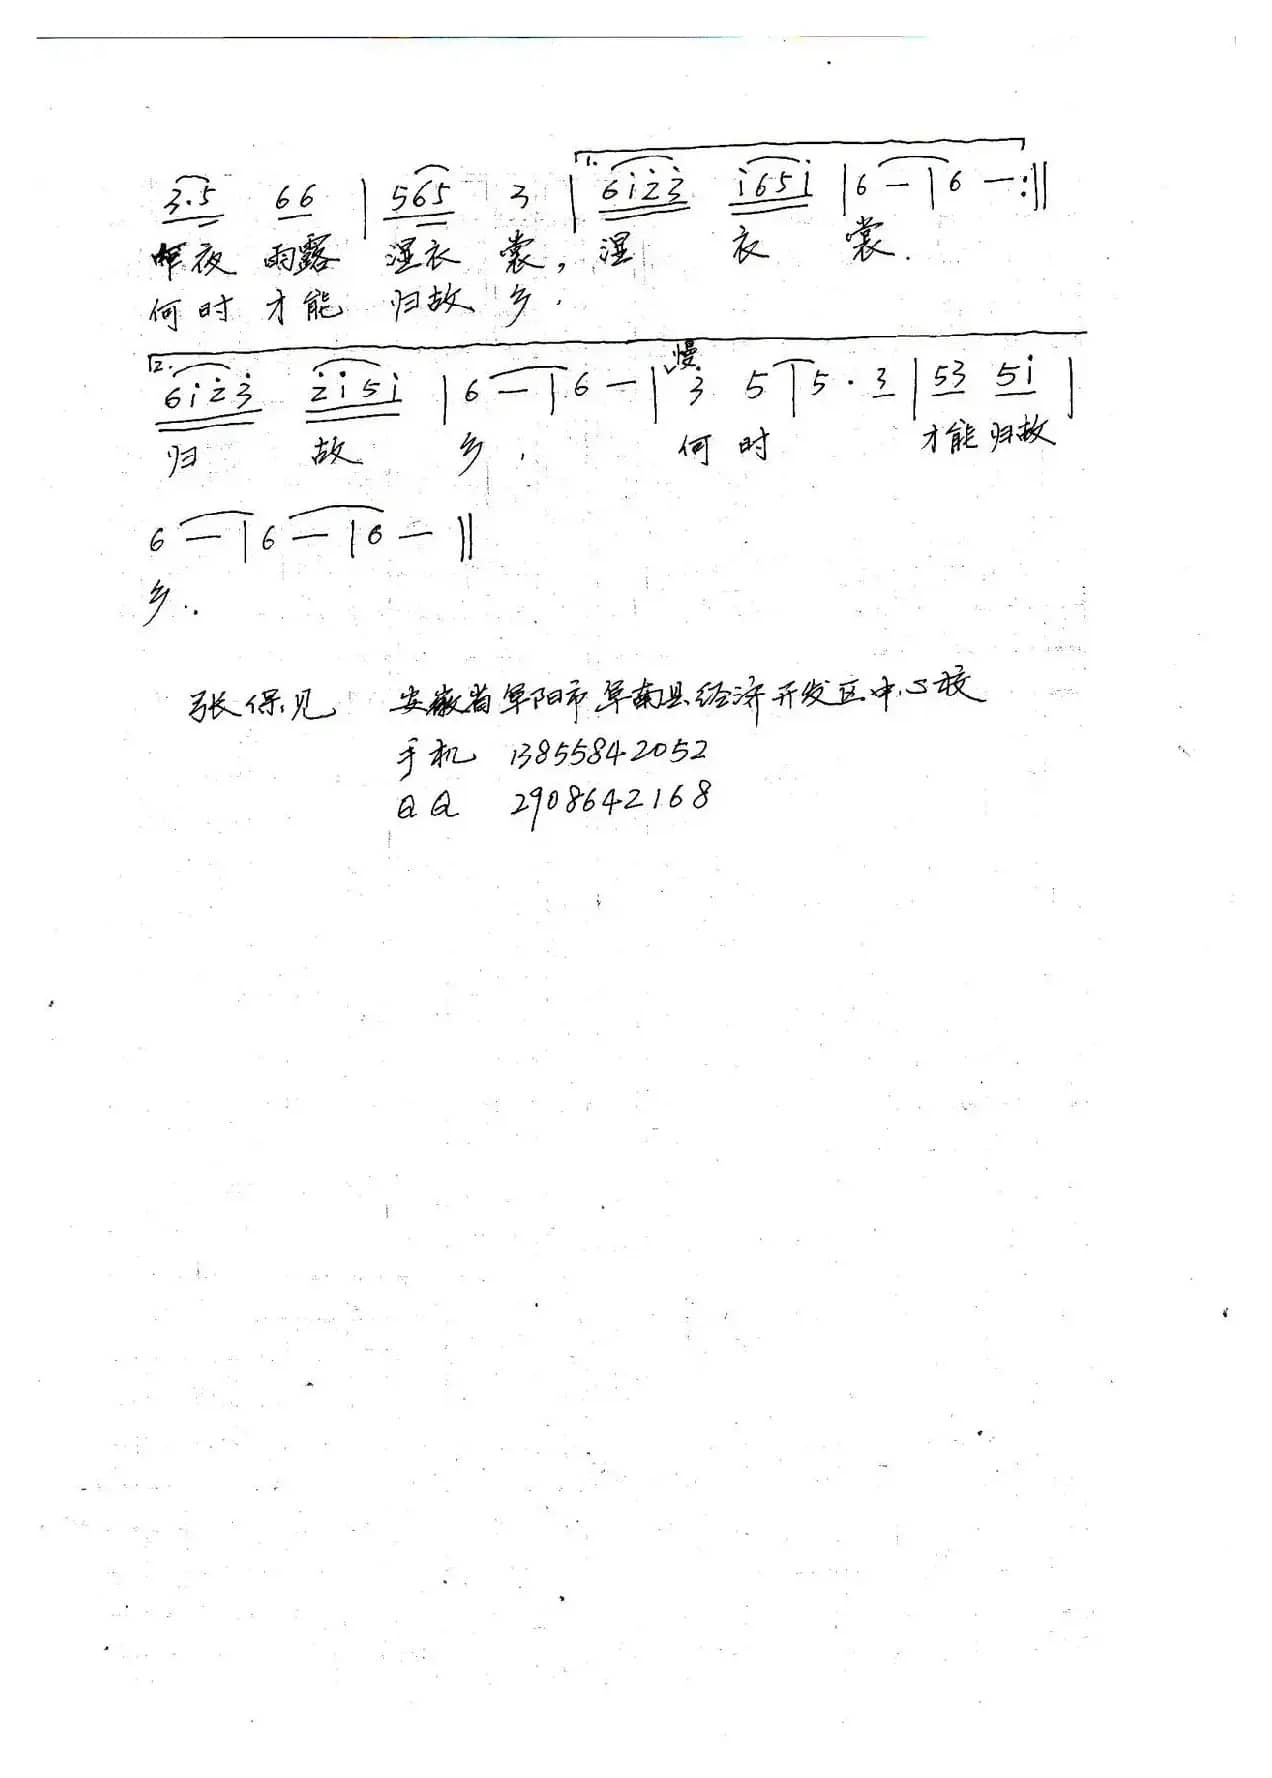 3.5 66 | 565 3 | 1. 6i23 i65i | 6 — | 6 — :||
昨夜 雨露 湿衣 裳，湿 衣 裳.
何时 才能 归故 乡.
2. 6i23 2i5i | 6 — | 6 — | 慢 3 5 | 5 · 3 | 53 5i |
归 故 乡. 何 时 才能 归故
6 — | 6 — | 6 — ||
乡..
张保见 安徽省阜阳市阜南县经济开发区中心校
手机 13855842052
QQ 2908642168